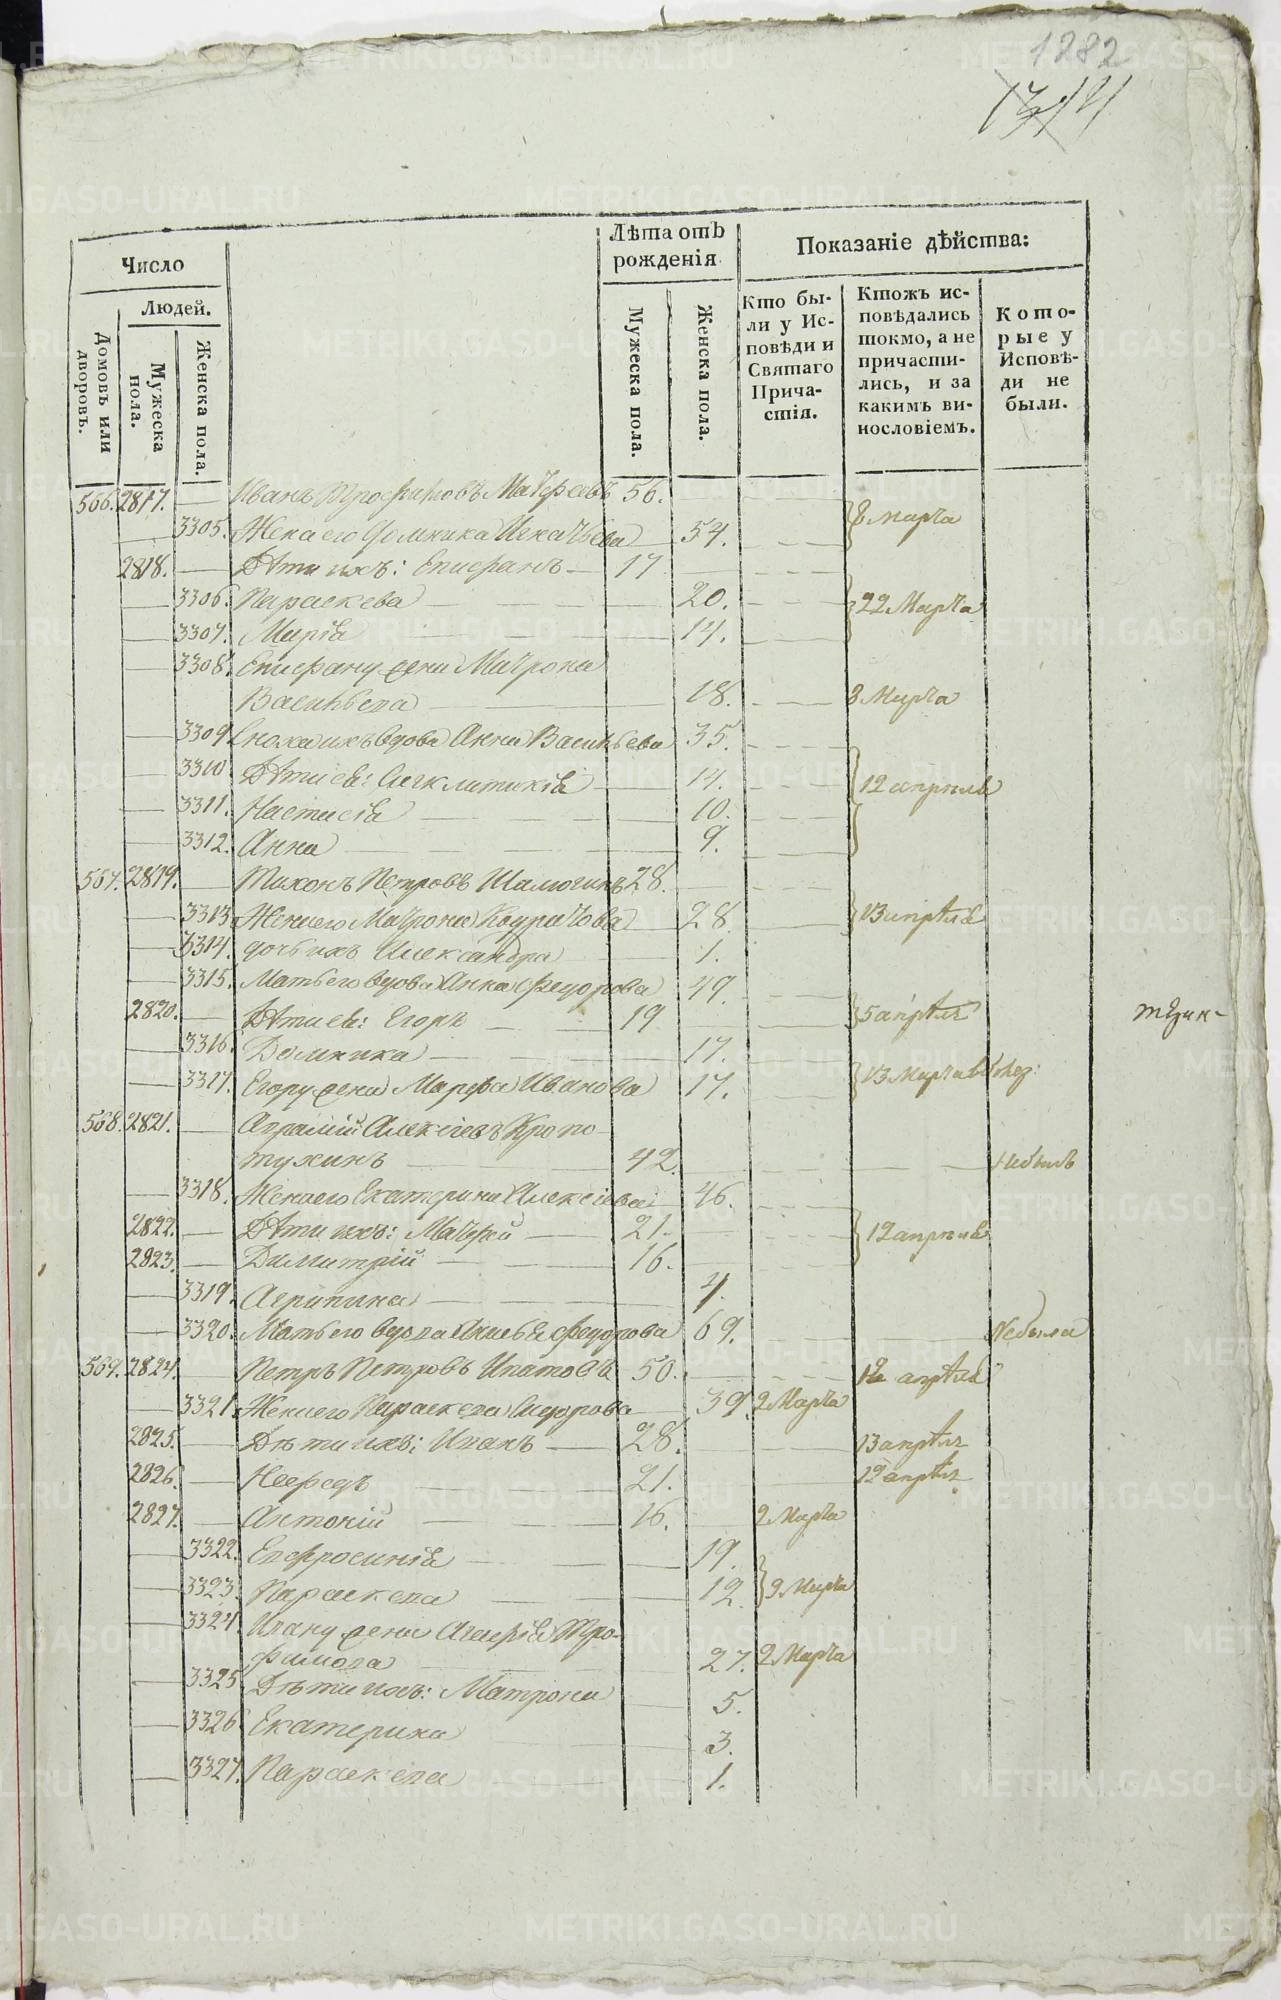 1282
Лѣта отъ рожденія
Показаніе дѣйства:
Число
Людей.
Домовъ или дворовъ.
Мужеска пола.
Женска пола.
Мужеска пола.
Женска пола.
Кто были у Исповѣди и Святаго Причастія.
Ктожъ исповѣдались токмо, а не причастились, и за какимъ винословіемъ.
Которые у Исповѣди не были.
566. 2817. Иванъ Трофимовъ 56.
3305. Жена его Домника 54. 8 марта
2818. Дѣти ихъ: Епифанъ 17
3306. Параскева 20. 22 Марта
3307. Марія 14.
3308. Епифану жена Матрона
Васильева 18. 8 Марта
3309 Сноха ихъ вдова Анна Васильева 35.
3310. Дѣти ея: Сигклитикія 14. 12 апрѣля
3311. Настасія 10.
3312. Анна 9.
567. 2819. Тихонъ Петровъ 28.
3313 Жена его Матрона 28. 13 апрѣля
3314. дочь ихъ Александра 1.
3315. Мать его вдова Анна Федорова 49.
2820. Дѣти ея: Егоръ 19 5 апрѣля
3316. Домника 17.
3317. Егору жена Марфа Иванова 17. 13 Марта
568. 2821. Алексіевъ Кропо-
тухинъ 42. Небылъ
3318. Жена его Екатерина Алексіева 46.
2822. Дѣти ихъ: 21. 12 апрѣля
2823. Димитрій 16.
3319. Агрипина 4.
3320. Мать его вдова Федорова 69. Небыла
569. 2824. Петръ Петровъ Ипатовъ 50. 12 апрѣля
3321 Жена его Параскева 39. 2 Марта
2825. Дѣти ихъ: Иванъ 28. 13 апрѣля
2826. Нефедъ 21. 12 апрѣля
2827. Антоній 16. 2 Марта
3322. Евфросинія 19.
3323. Параскева 12. 9 Марта
3324 Ивану жена Тро-
фимова 27. 2 Марта
3325 Дѣти ихъ: Матрона 5.
3326 Екатерина 3.
3327. Параскева 1.